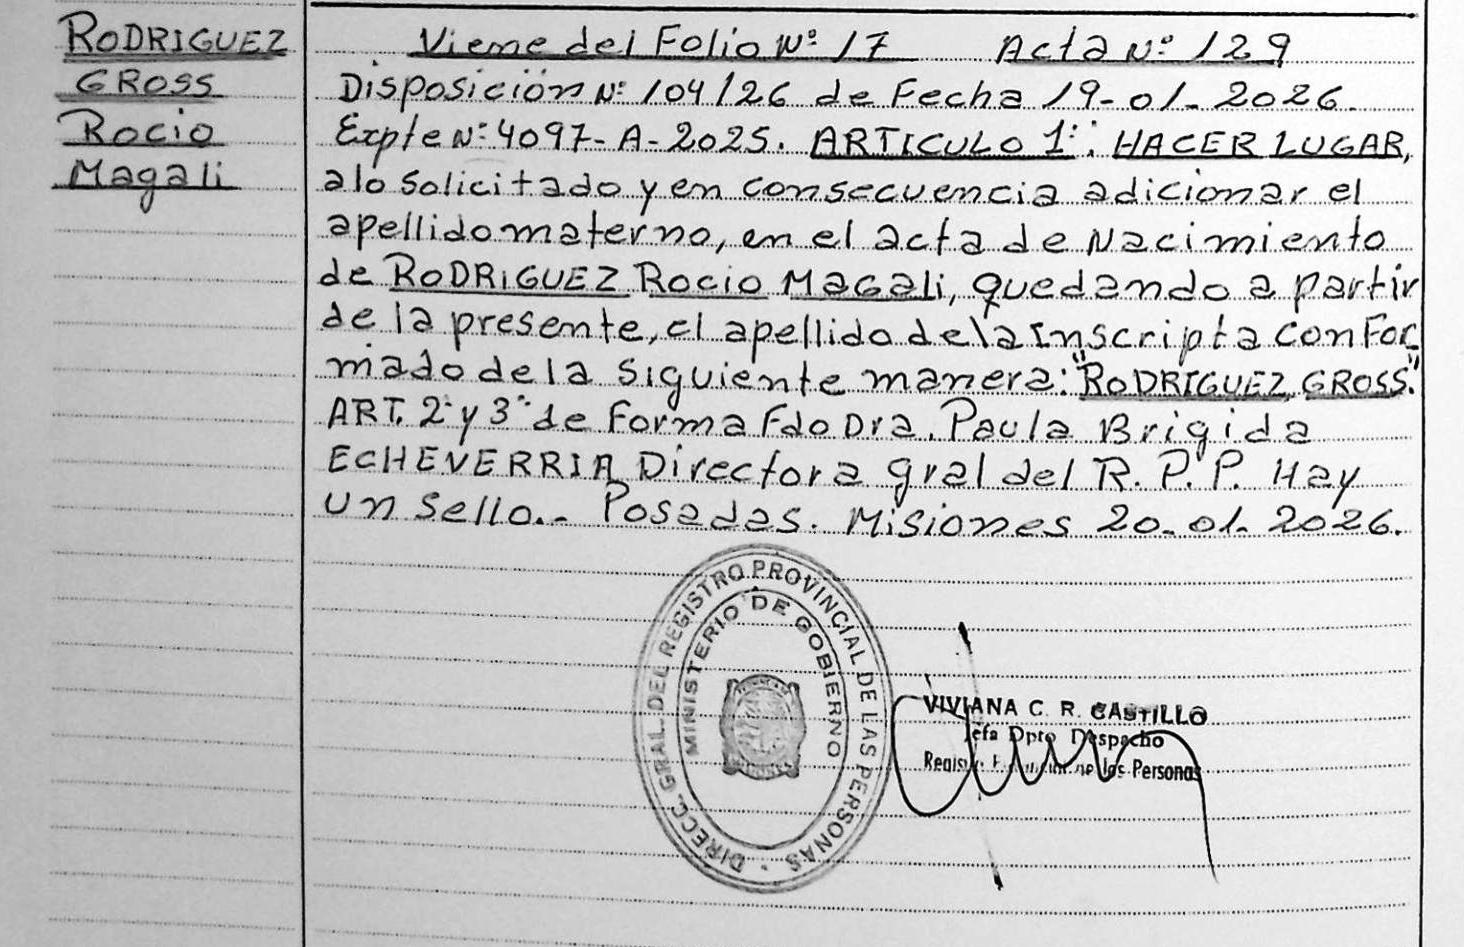 RODRIGUEZ
GROSS
Rocio
Magali
Viene del Folio Nº 17 Acta Nº 129
Disposición Nº 104/26 de Fecha 19-01-2026.
Expte Nº 4097-A-2025. ARTICULO 1º: HACER LUGAR,
a lo solicitado y en consecuencia adicionar el
apellido materno, en el acta de Nacimiento
de RODRIGUEZ Rocio MaGali, quedando a partir
de la presente, el apellido de la Inscripta conFor
mado de la siguiente manera: "RODRIGUEZ GROSS."
ART. 2º y 3º de Forma Fdo Dra. Paula Brigida
ECHEVERRIA Directora gral del R.P.P. Hay
un sello.- Posadas. Misiones 20-01-2026.
DIRECC. GRAL. DEL REGISTRO PROVINCIAL DE LAS PERSONAS
MINISTERIO DE GOBIERNO
VIVIANA C. R. CASTILLO
Jefa Dpto Despacho
de las Personas